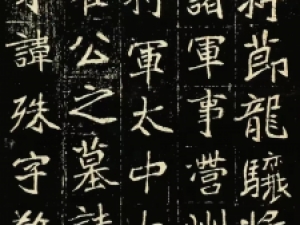 持節龍驤將
諸軍事營州
將軍太中大
崔公之墓誌
才諱殊字敬